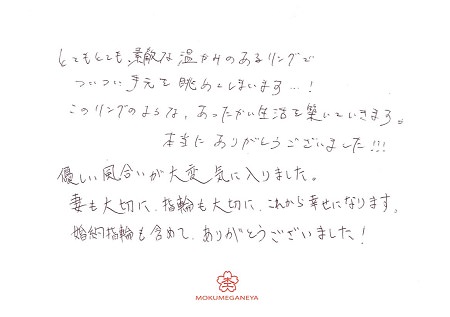 とてもとても、素敵な温かみのあるリングで
ついつい手元を眺めてしまいます…!
このリングのような、あったかい生活を築いていきます。
本当にありがとうございました!!!
優しい風合いが大変気に入りました。
妻も大切に、指輪も大切に、これから幸せになります。
婚約指輪も含めて、ありがとうございました!
杢
MOKUMEGANEYA